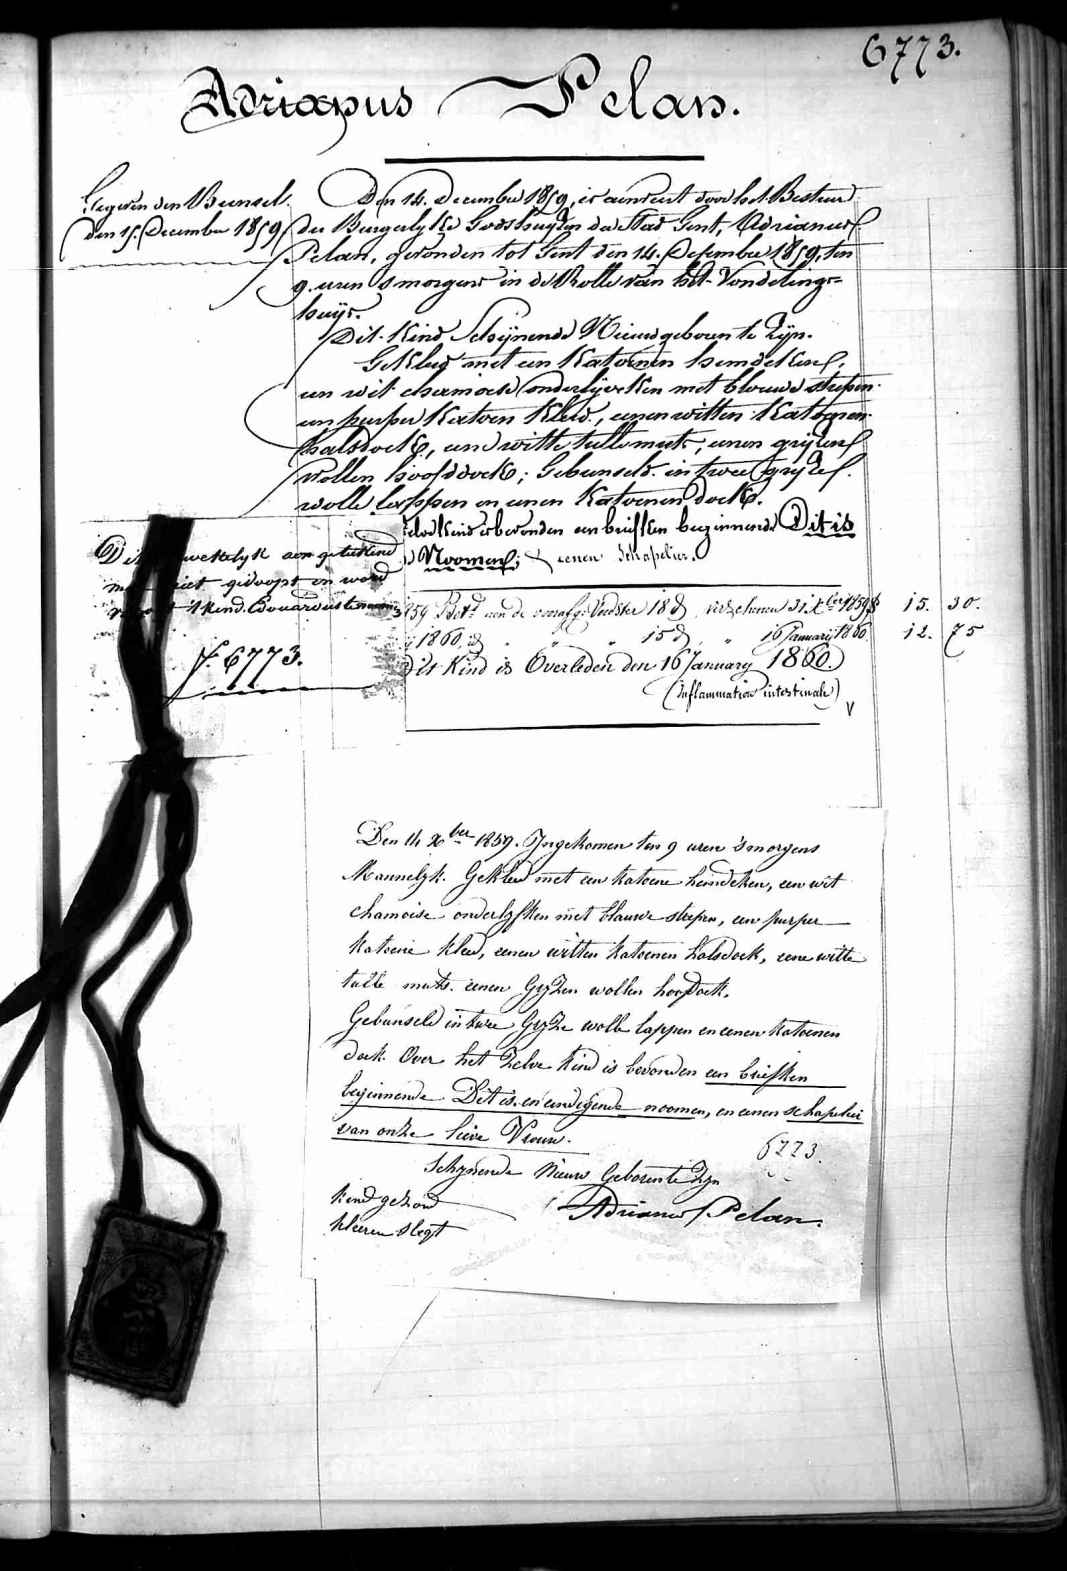 6773.
Adrianus Pelan.
Den 14. December 1859, is aanveert door het Bestuer
der Burgerlyke Godshuyzen der stad Gent, Adrianus
Pelan, gevonden tot Gent den 14. December 1859, ten
9. uren s'morgens in de Rolle van het Vondelings=
huys.
Dit Kind Schijnende Nieuwgeboren te Zijn.
Gekleed met een Katoenen hemdeken,
een wit chamoise onderlijveken met blauwe strepen
een purper Katoen Kleed, eenen witten Katoenen
halsdoek, eene witte tulle muts, eenen grijzen
wollen hoofddoek; Gebunseld in twee grijze
wolle lappen en eenen Katoenen doek.
kind is bevonden een briefken beginnende Dit is
Noomen, & eenen Schapulier.
den 15. December 1859
aen geteekend
niet gedoopt en word
't kind Edouardus te
N. 6773.
1859 aen de Voedster 18 verschenen 31 Xber 1859 15. 30.
1860 " " 15 " 16 January 1860. 12. 75
Dit Kind is Overleden den 16 January 1860.
(inflammation intestinale)
Den 14 Xber 1859. Ingekomen ten 9 uren 's morgens
Mannelyk. Gekleed met een katoene hemdeken, een wit
chamoise onderlyfken met blauwe strepen, een purper
katoene kleed, eenen witten katoenen halsdoek, eene witte
tulle muts. eenen Gryzen wollen hoofdoek.
Gebunseld in twee Gryze wolle lappen en eenen katoenen
doek. Over het zelve kind is bevonden een briefken
beginnende Dit is en eindigende noomen, en eenen schapulier
van onze lieve Vrouw.
6773.
Schynende Nieuw Geboren te Zyn
kind gezond
Adrianus Pelan.
kleeren slegt